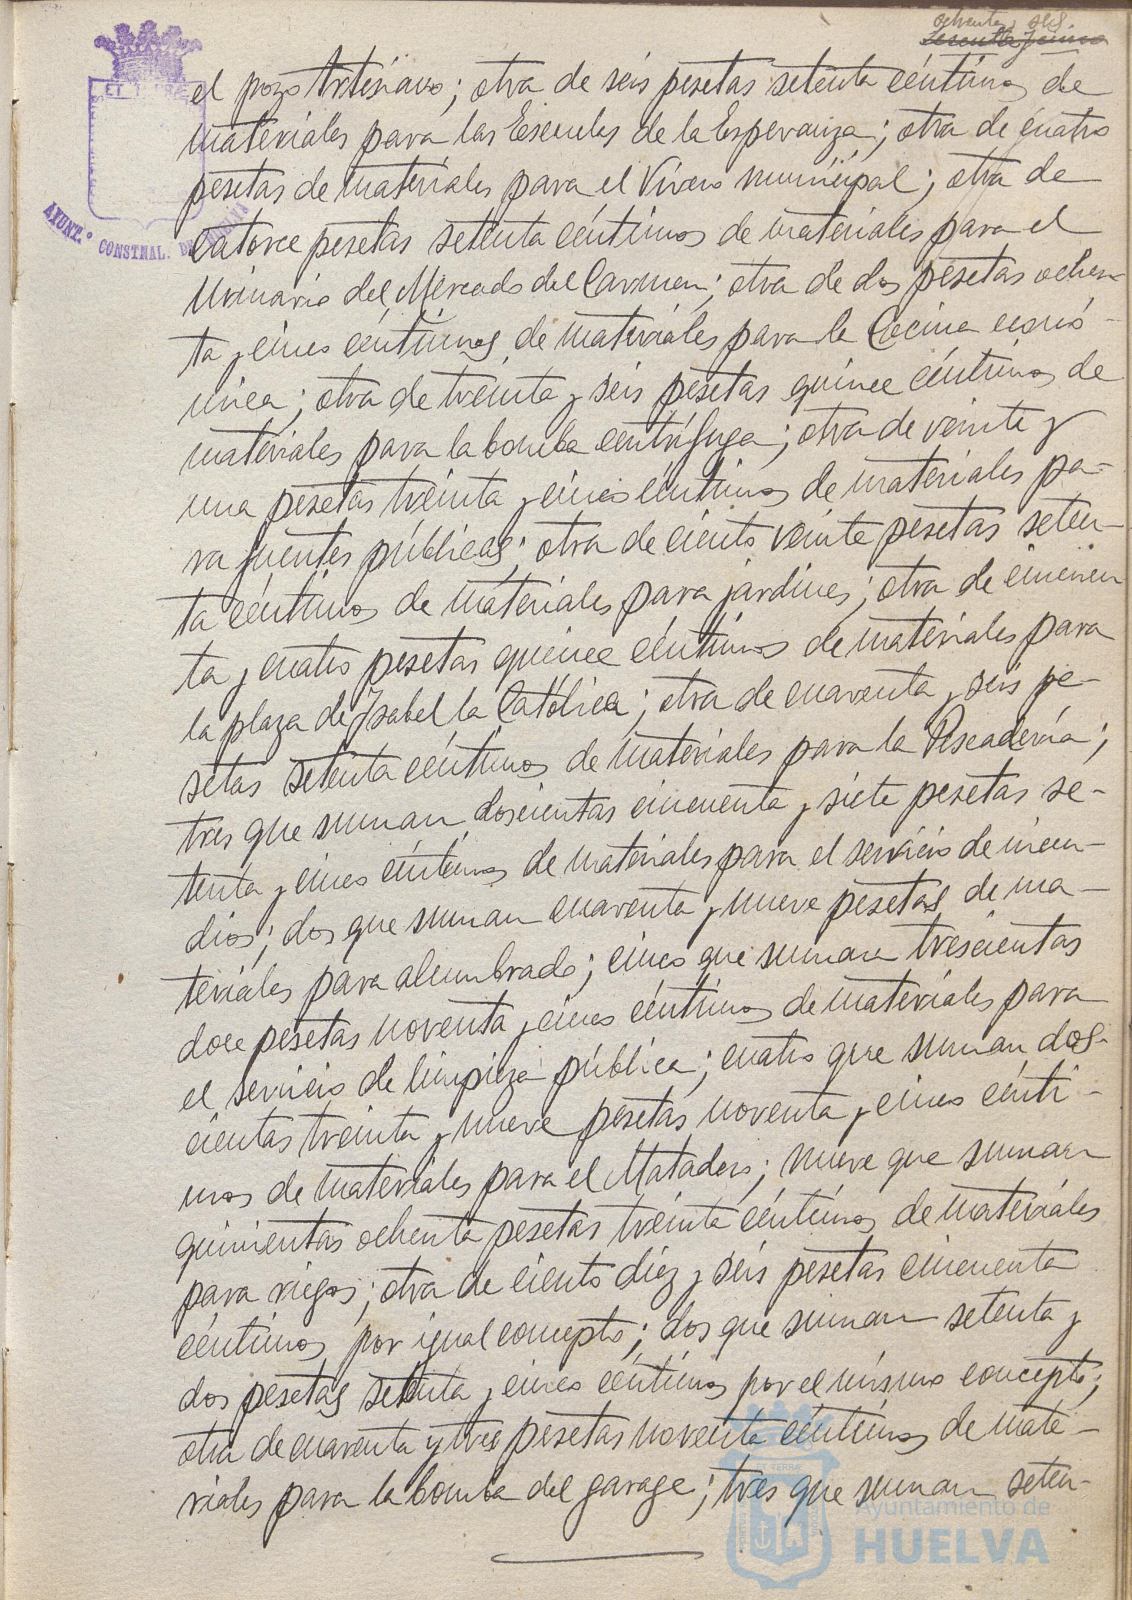 ochenta y seis.
sesenta y cinco
el pozo Artesiano; otra de seis pesetas setenta céntimos de
materiales para las Escuelas de la Esperanza; otra de cuatro
pesetas de materiales para el Vivero municipal; otra de
catorce pesetas setenta céntimos de materiales para el
Urinario del Mercado del Carmen; otra de dos pesetas ochen-
ta y cinco céntimos de materiales para la Cocina econó-
mica; otra de treinta y seis pesetas quince céntimos de
materiales para la bomba centrífuga; otra de veinte y
una pesetas treinta y cinco céntimos de materiales pa-
ra fuentes públicas; otra de ciento veinte pesetas seten-
ta céntimos de materiales para jardines; otra de cincuen
ta y cuatro pesetas quince céntimos de materiales para
la plaza de Isabel la Católica; otra de cuarenta y seis pe-
setas setenta céntimos de materiales para la Pescadería;
tres que suman doscientas cincuenta y siete pesetas se-
tenta y cinco céntimos de materiales para el servicio de incen-
dios; dos que suman cuarenta y nueve pesetas de ma-
teriales para alumbrado; cinco que suman trescientas
doce pesetas noventa y cinco céntimos de materiales para
el servicio de limpieza pública; cuatro que suman dos-
cientas treinta y nueve pesetas noventa y cinco cénti-
mos de materiales para el Matadero; nueve que suman
quinientas ochenta pesetas treinta céntimos de materiales
para riegos; otra de ciento diez y seis pesetas cincuenta
céntimos por igual concepto; dos que suman setenta y
dos pesetas setenta y cinco céntimos por el mismo concepto;
otra de cuarenta y tres pesetas noventa céntimos de mate-
riales para la bomba del garage; tres que suman seten-
AYUNT.º CONSTNAL. DE
Ayuntamiento de
HUELVA